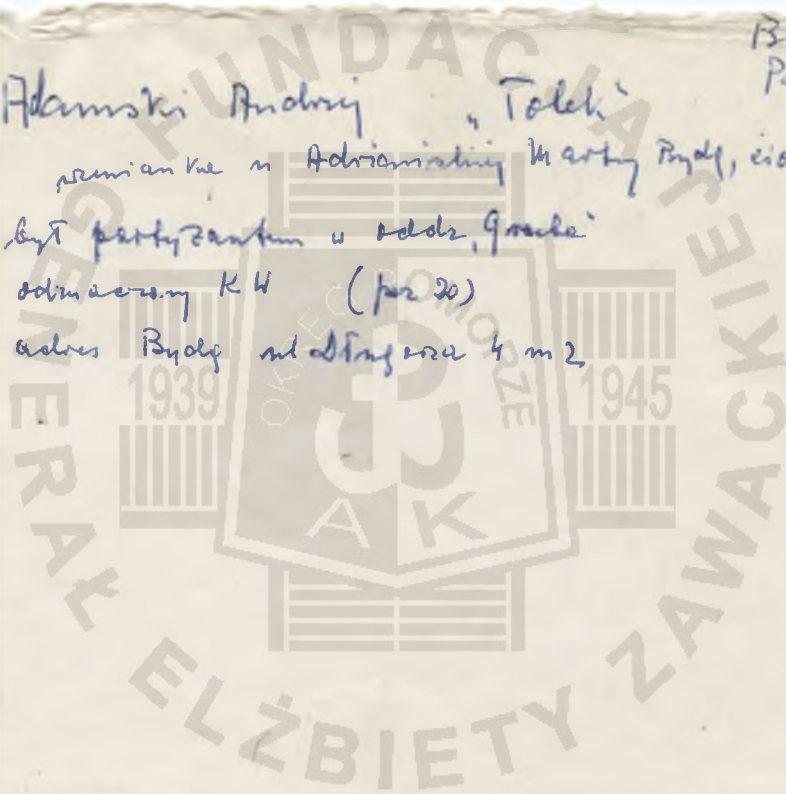 B
P
Adamski Andrzej "Tolek"
wzmianka u Marty Bydg,
był partyzantem w oddz. "Grocha"
odznaczony KW (poz 20)
adres Bydg ul Długosza 4 m 2
FUNDACJA GENERAŁ ELŻBIETY ZAWACKIEJ
OKRĘG POMORZE
1939
1945
AK